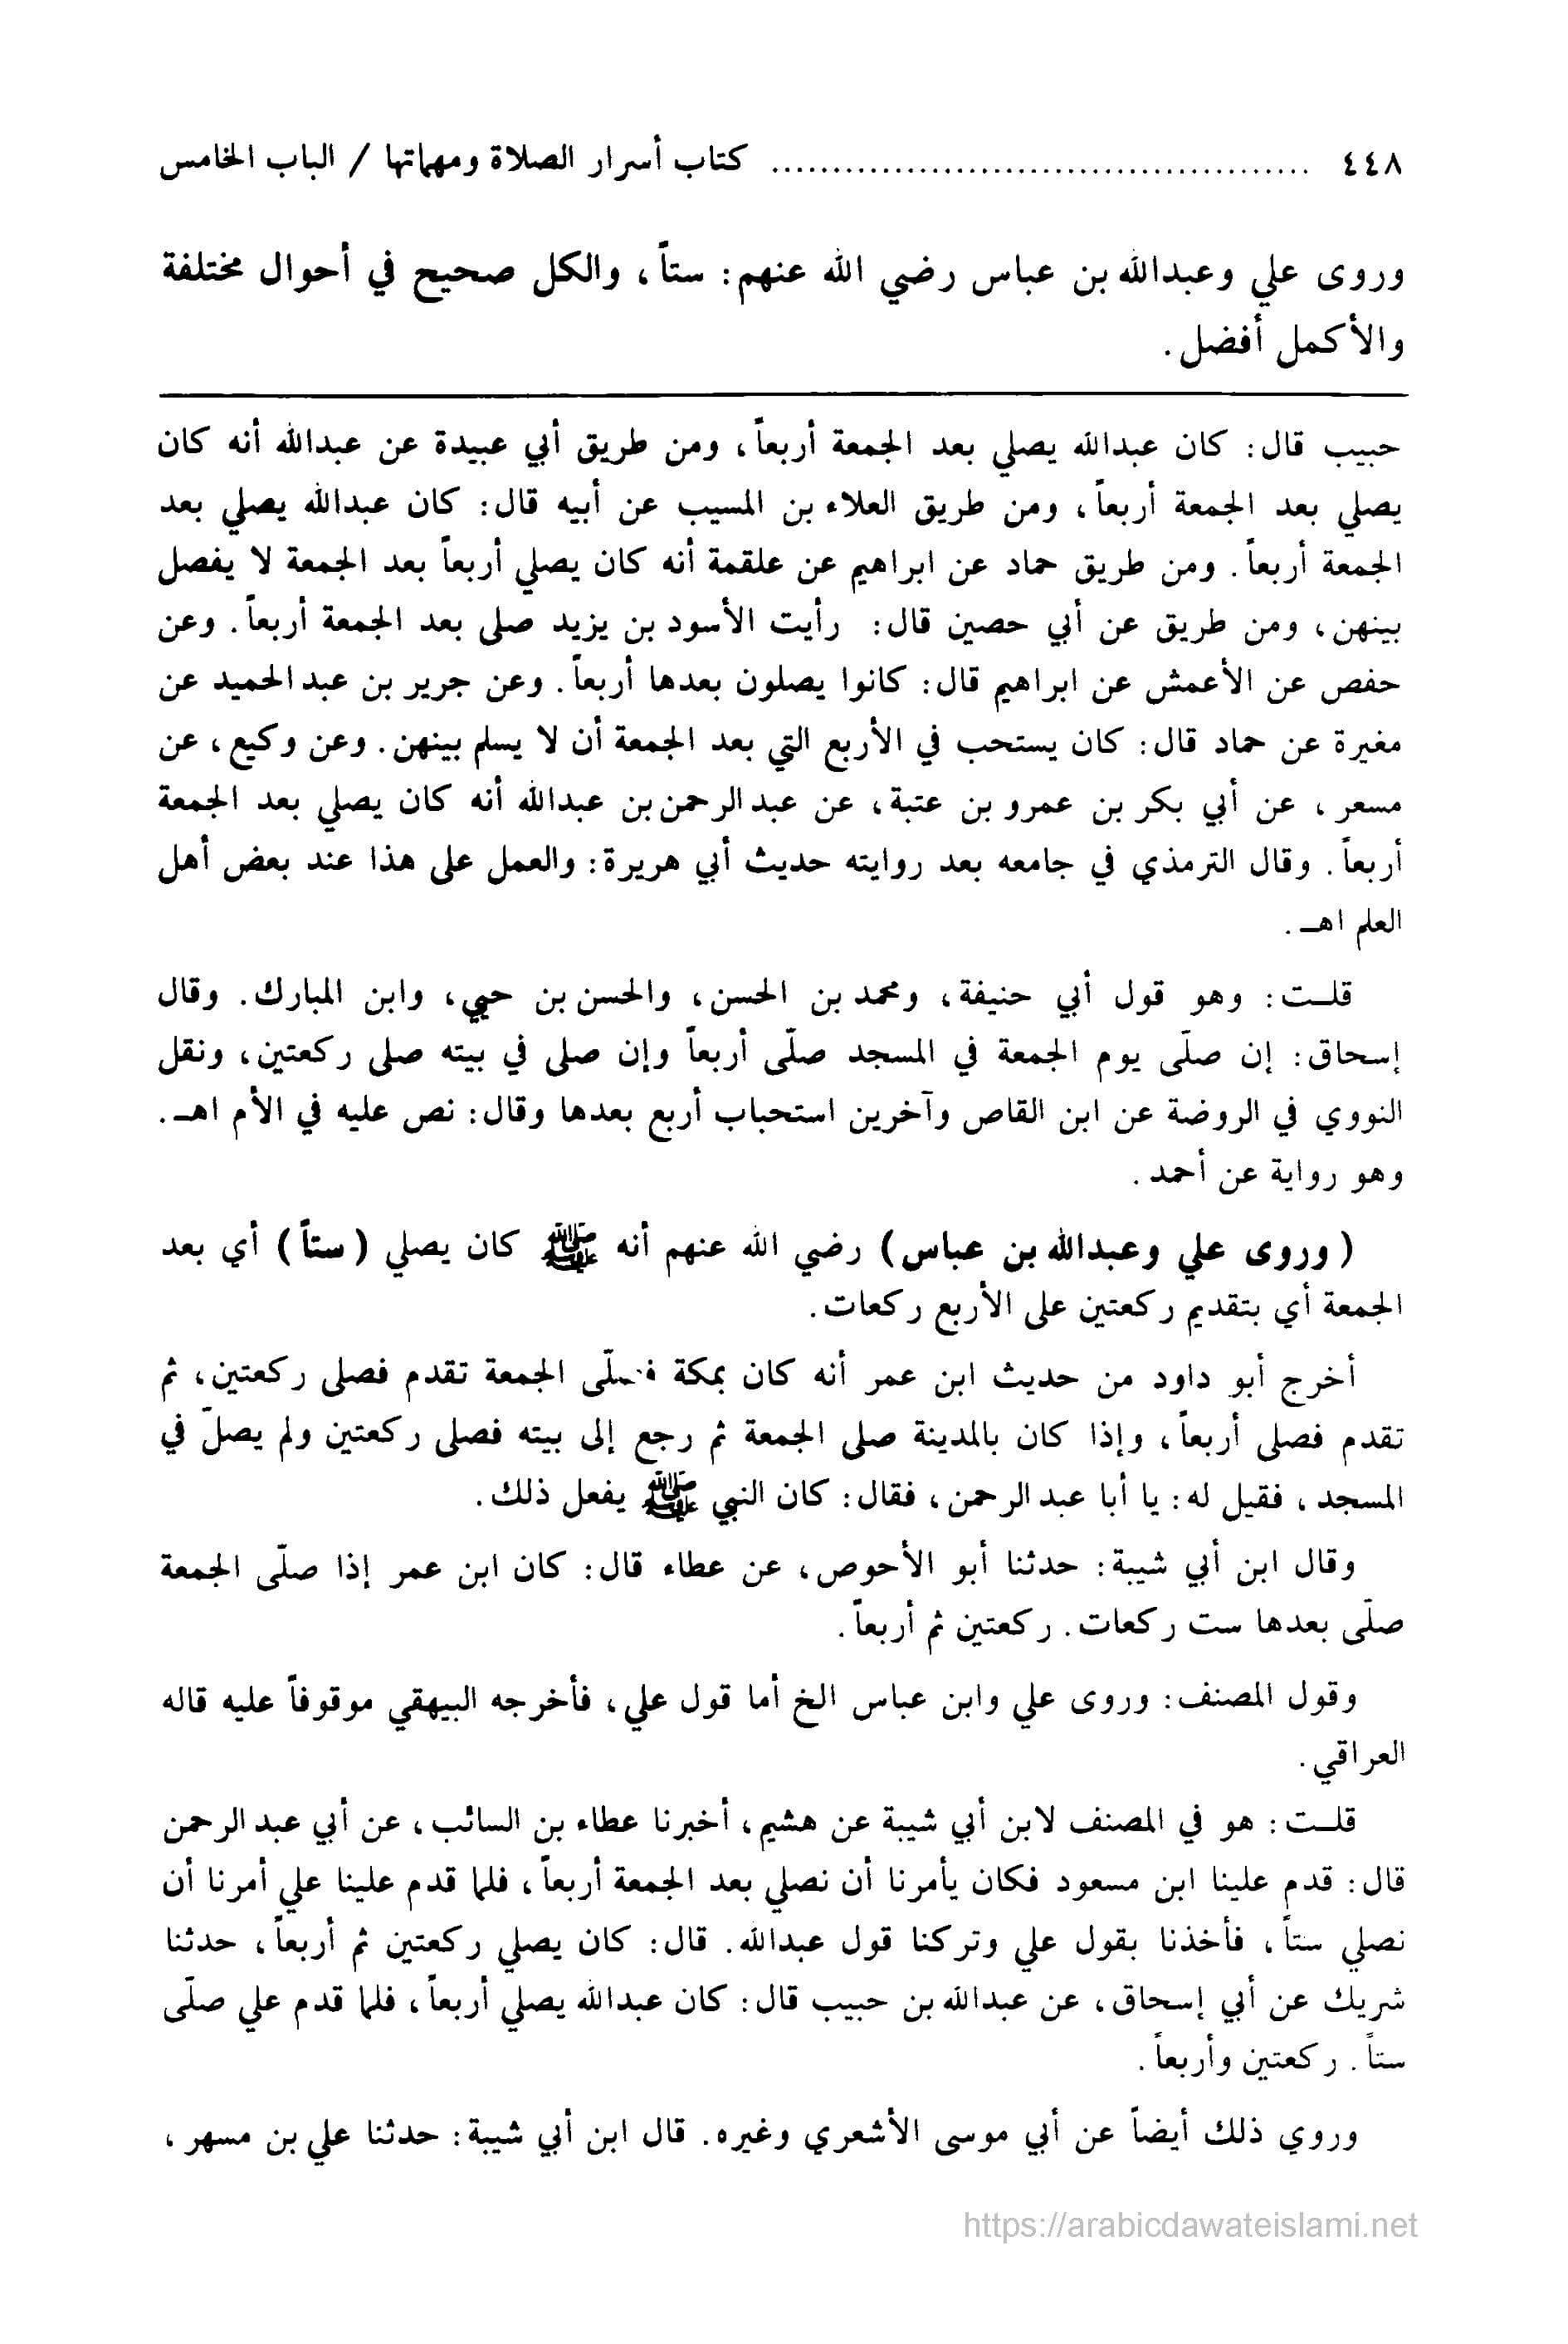 ٤٤٨ ........................................... كتاب أسرار الصلاة ومهماتها / الباب الخامس
وروى علي وعبدالله بن عباس رضي الله عنهم: ستاً، والكل صحيح في أحوال مختلفة
والأكمل أفضل.
حبيب قال: كان عبدالله يصلي بعد الجمعة أربعاً، ومن طريق أبي عبيدة عن عبدالله أنه كان
يصلي بعد الجمعة أربعاً، ومن طريق العلاء بن المسيب عن أبيه قال: كان عبدالله يصلي بعد
الجمعة أربعاً. ومن طريق حماد عن ابراهيم عن علقمة أنه كان يصلي أربعاً بعد الجمعة لا يفصل
بينهن، ومن طريق عن أبي حصين قال: رأيت الأسود بن يزيد صلى بعد الجمعة أربعاً. وعن
حفص عن الأعمش عن ابراهيم قال: كانوا يصلون بعدها أربعاً. وعن جرير بن عبد الحميد عن
مغيرة عن حماد قال: كان يستحب في الأربع التي بعد الجمعة أن لا يسلم بينهن. وعن وكيع، عن
مسعر، عن أبي بكر بن عمرو بن عتبة، عن عبد الرحمن بن عبدالله أنه كان يصلي بعد الجمعة
أربعاً. وقال الترمذي في جامعه بعد روايته حديث أبي هريرة: والعمل على هذا عند بعض أهل
العلم اهـ.
قلـت: وهو قول أبي حنيفة، ومحمد بن الحسن، والحسن بن حيي، وابن المبارك. وقال
إسحاق: إن صلّى يوم الجمعة في المسجد صلّى أربعاً وإن صلى في بيته صلى ركعتين، ونقل
النووي في الروضة عن ابن القاص وآخرين استحباب أربع بعدها وقال: نص عليه في الأم اهـ.
وهو رواية عن أحمد.
(وروى علي وعبدالله بن عباس) رضي الله عنهم أنه ﷺ كان يصلي (ستاً) أي بعد
الجمعة أي بتقديم ركعتين على الأربع ركعات.
أخرج أبو داود من حديث ابن عمر أنه كان بمكة فصلّى الجمعة تقدم فصلى ركعتين، ثم
تقدم فصلى أربعاً، وإذا كان بالمدينة صلى الجمعة ثم رجع إلى بيته فصلى ركعتين ولم يصلّ في
المسجد، فقيل له: يا أبا عبد الرحمن، فقال: كان النبي ﷺ يفعل ذلك.
وقال ابن أبي شيبة: حدثنا أبو الأحوص، عن عطاء قال: كان ابن عمر إذا صلّى الجمعة
صلّى بعدها ست ركعات. ركعتين ثم أربعاً.
وقول المصنف: وروى علي وابن عباس الخ أما قول علي، فأخرجه البيهقي موقوفاً عليه قاله
العراقي.
قلـت: هو في المصنف لابن أبي شيبة عن هشيم، أخبرنا عطاء بن السائب، عن أبي عبد الرحمن
قال: قدم علينا ابن مسعود فكان يأمرنا أن نصلي بعد الجمعة أربعاً، فلما قدم علينا علي أمرنا أن
نصلي ستاً، فأخذنا بقول علي وتركنا قول عبدالله. قال: كان يصلي ركعتين ثم أربعاً، حدثنا
شريك عن أبي إسحاق، عن عبدالله بن حبيب قال: كان عبدالله يصلي أربعاً، فلما قدم علي صلّى
ستاً. ركعتين وأربعاً.
وروي ذلك أيضاً عن أبي موسى الأشعري وغيره. قال ابن أبي شيبة: حدثنا علي بن مسهر،
https://arabicdawateislami.net